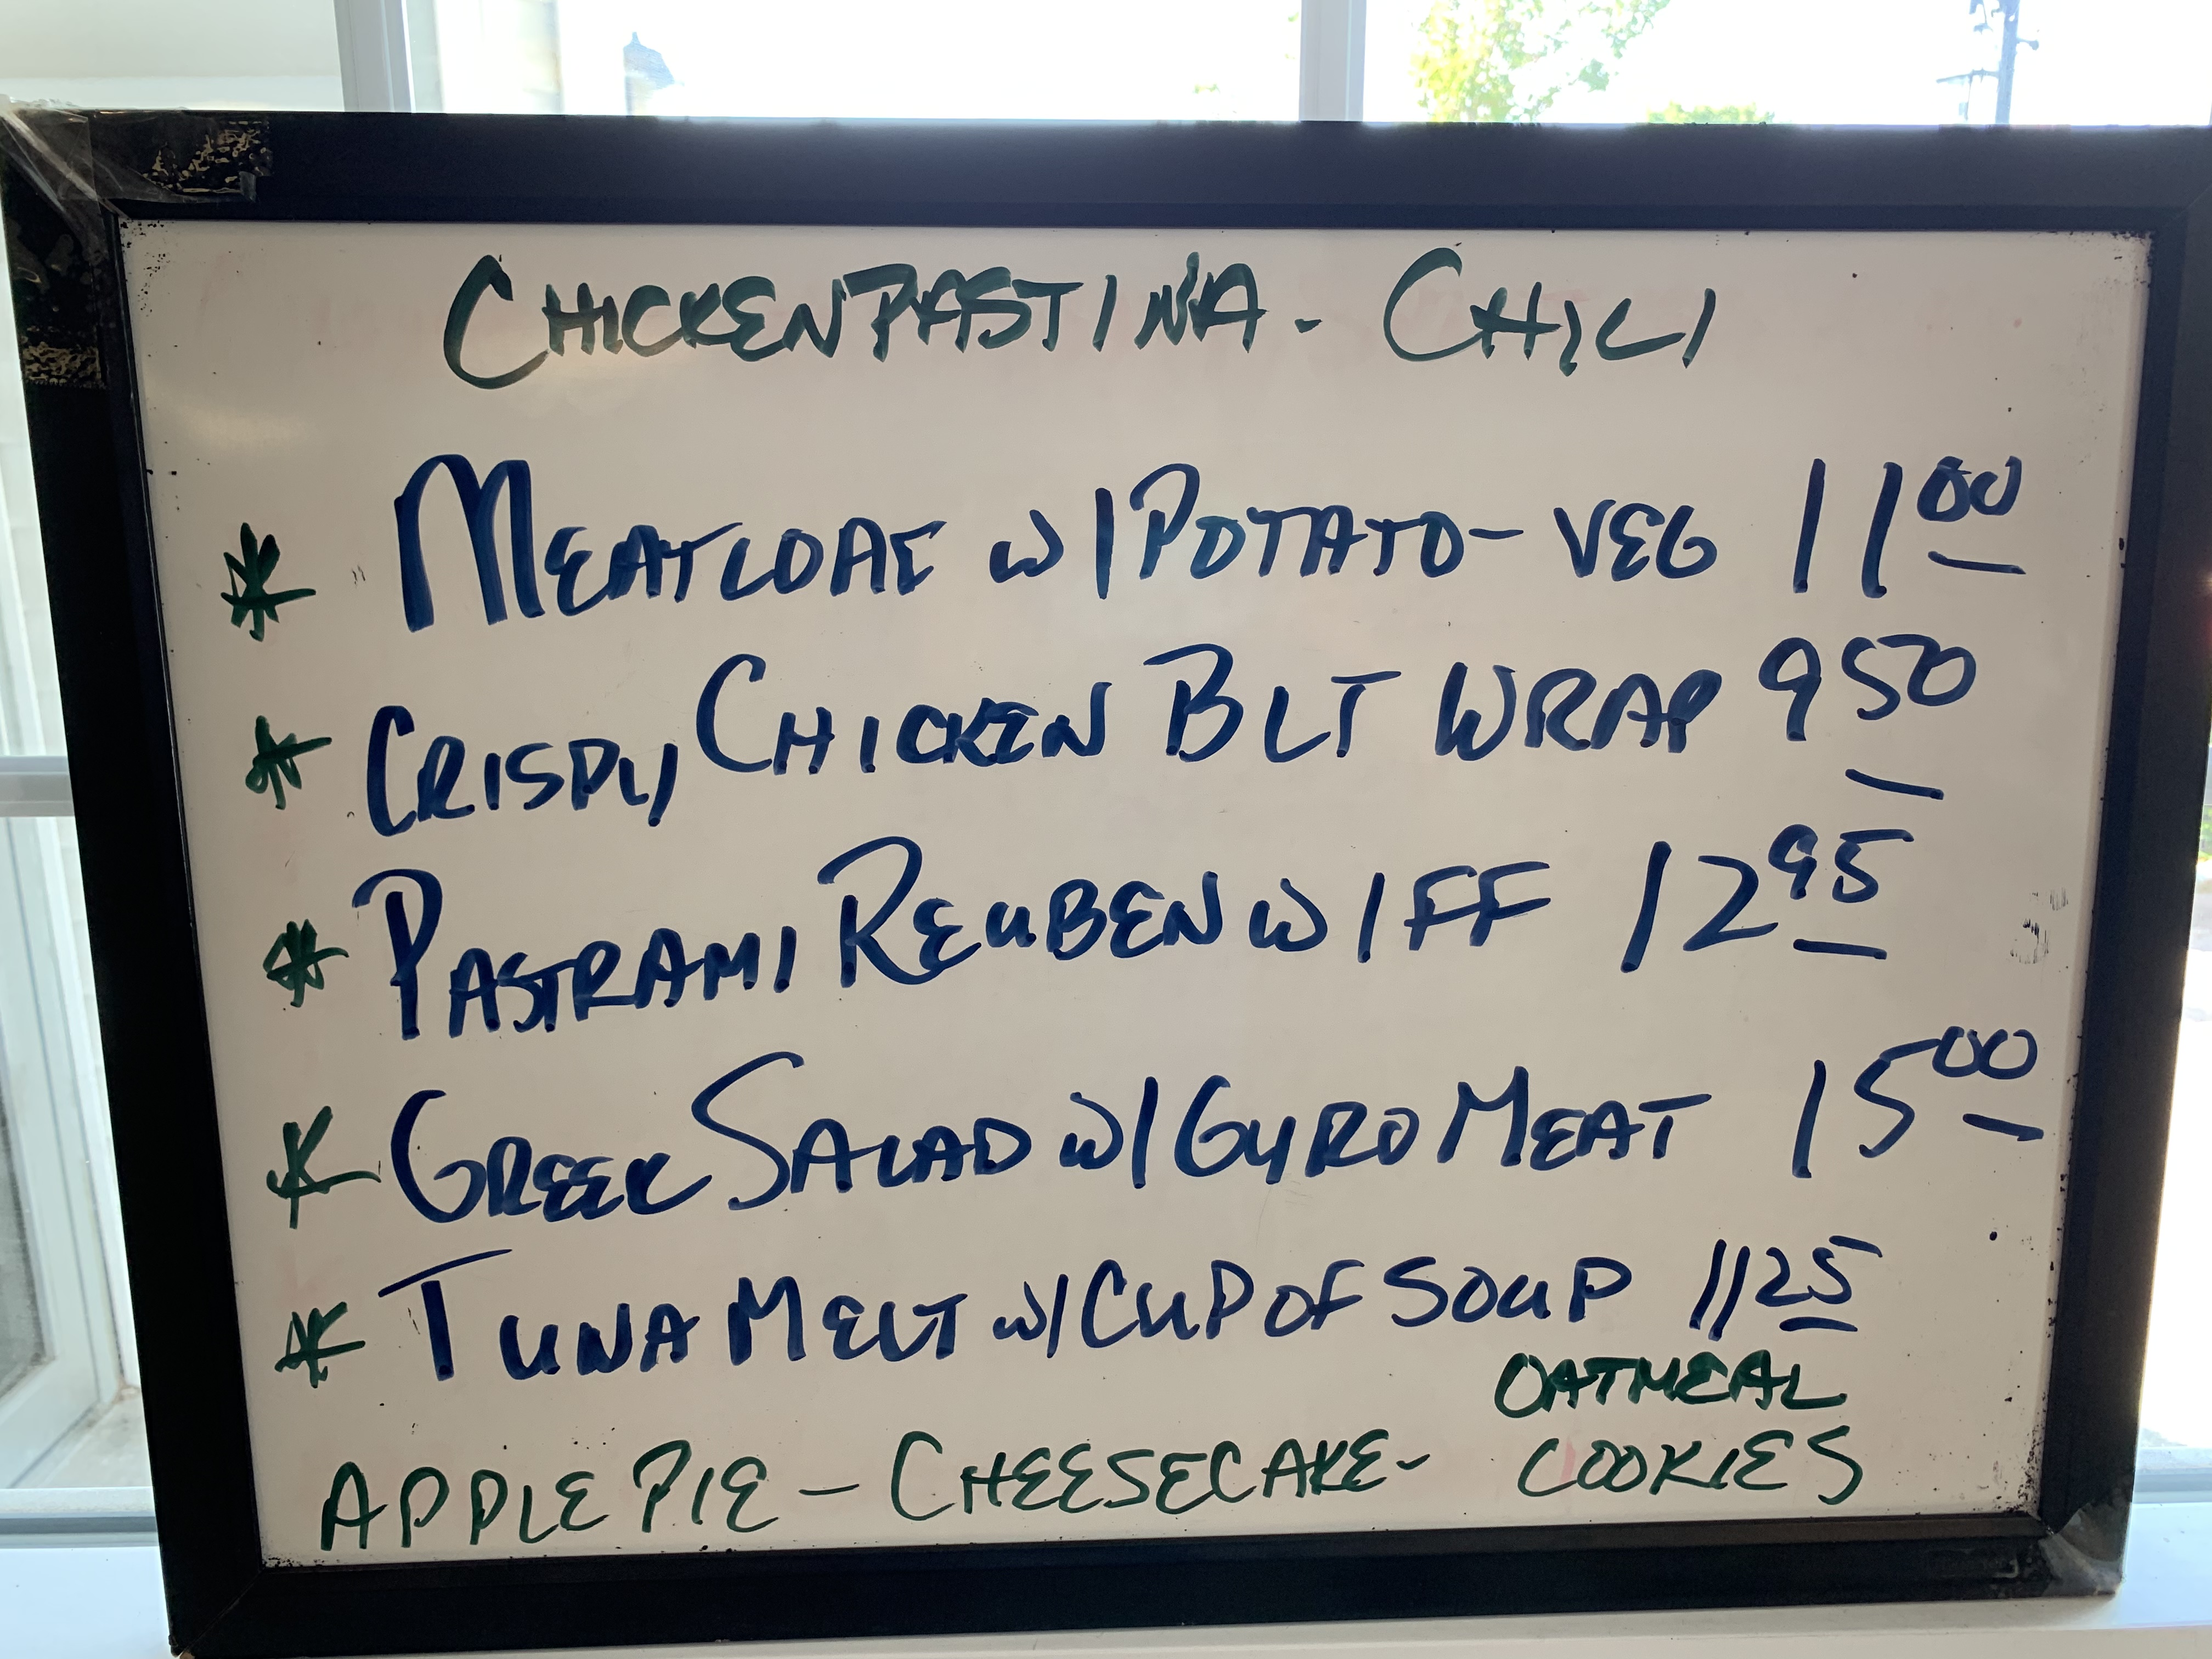 CHICKEN PASTINA - CHILI
* MEATLOAF W/ POTATO - VEG 11 00
* CRISPY CHICKEN BLT WRAP 9 50
* PASTRAMI REUBEN W/ FF 12 95
* GREEK SALAD W/ GYRO MEAT 15 00
* TUNA MELT W/ CUP OF SOUP 11 25
APPLE PIE - CHEESECAKE - OATMEAL
COOKIES